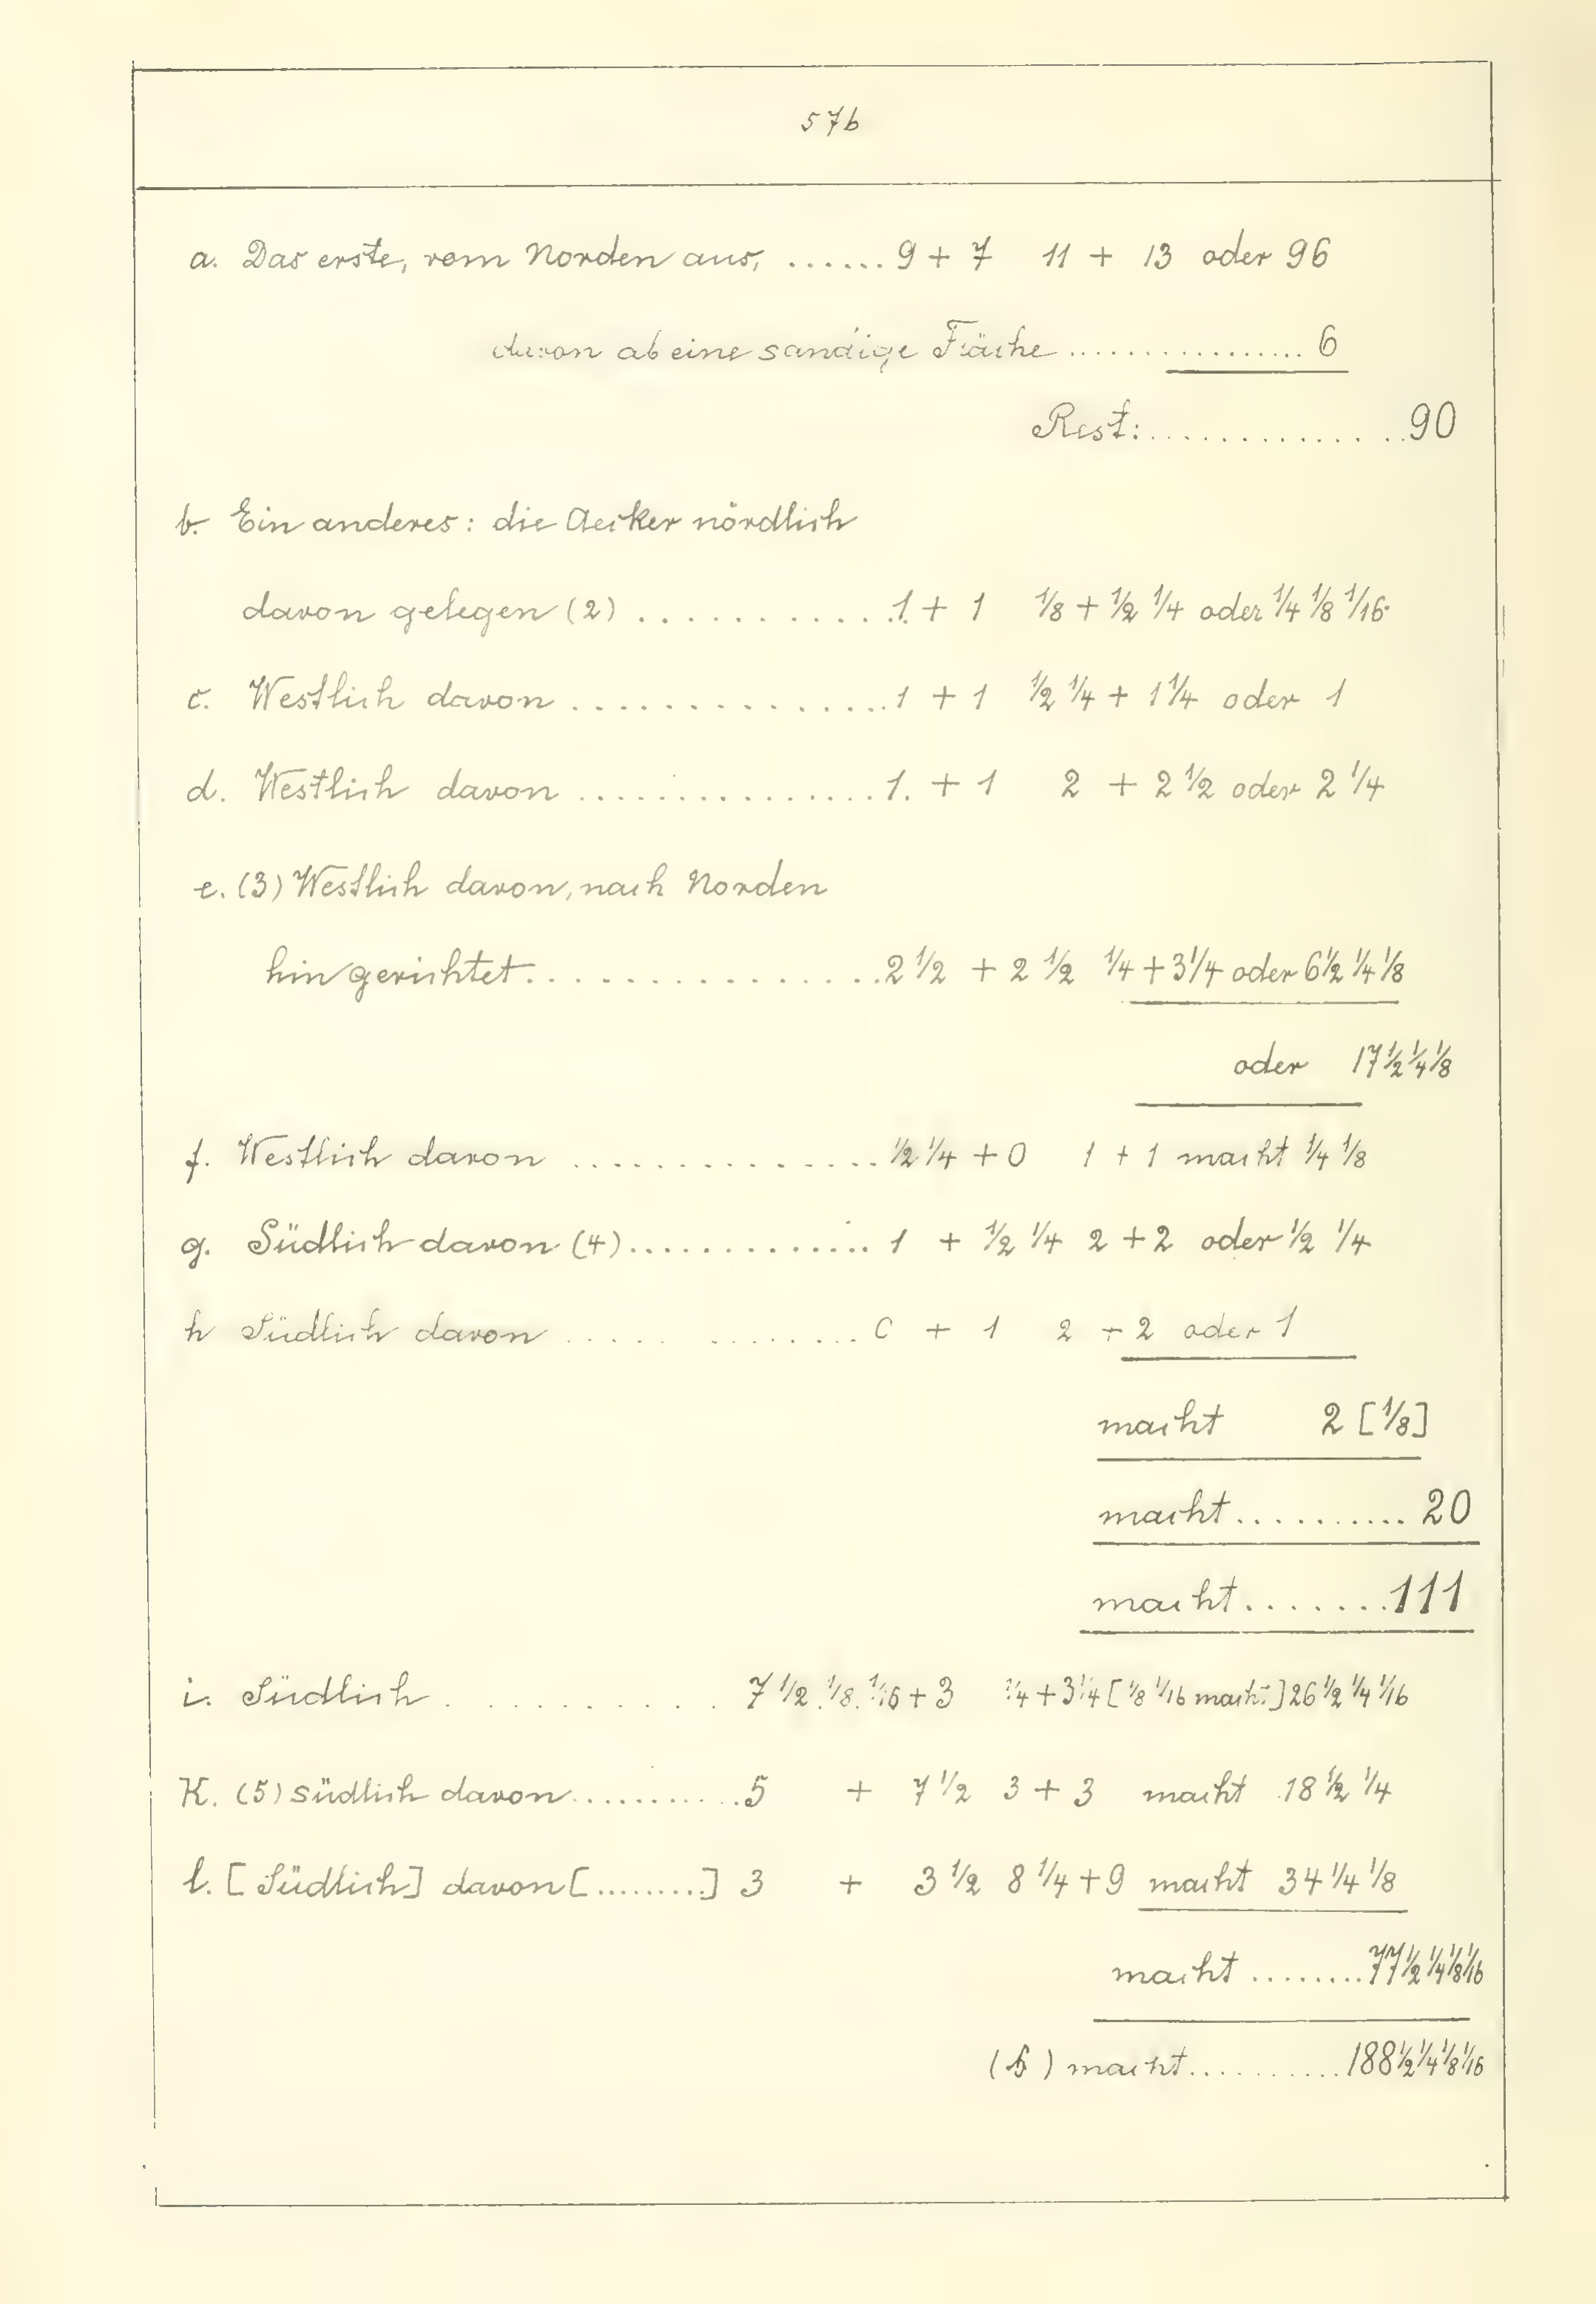 57b
a. Das erste, vom Norden aus, ...... 9 + 7 11 + 13 oder 96
davon ab eine sandige Fläche .................. 6
Rest: .............. 90
b. Ein anderes: die Aecker nördlich
davon gelegen (2) ............ 1 + 1 1/8 + 1/2 1/4 oder 1/4 1/8 1/16
c. Westlich davon ............... 1 + 1 1/2 1/4 + 1 1/4 oder 1
d. Westlich davon ............... 1. + 1 2 + 2 1/2 oder 2 1/4
e. (3) Westlich davon, nach Norden
hin gerichtet ............... 2 1/2 + 2 1/2 1/4 + 3 1/4 oder 6 1/2 1/4 1/8
oder 17 1/2 1/4 1/8
f. Westlich davon ............... 1/2 1/4 + 0 1 + 1 macht 1/4 1/8
g. Südlich davon (4) ............. 1 + 1/2 1/4 2 + 2 oder 1/2 1/4
h Südlich davon ..... ........ 0 + 1 2 + 2 oder 1
macht 2 [1/8]
macht .......... 20
macht ........ 111
i. Südlich ........... 7 1/2 1/8 1/16 + 3 1/4 + 3 1/4 [1/8 1/16 macht] 26 1/2 1/4 1/16
K. (5) südlich davon .......... 5 + 7 1/2 3 + 3 macht 18 1/2 1/4
l. [Südlich] davon [.........] 3 + 3 1/2 8 1/4 + 9 macht 34 1/4 1/8
macht ........ 77 1/2 1/4 1/8 1/16
(6) macht ........... 188 1/2 1/4 1/8 1/16